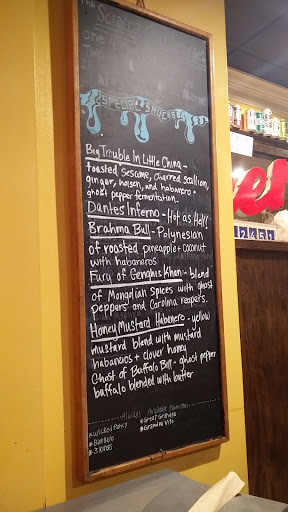 The
one
Two
SPECIAL SAUCES
Big Trouble In Little China -
toasted sesame, charred scallion,
ginger, hoisin, and habanero +
ghost pepper fermentation.
Dantes Inferno - Hot as Hell
Brahma Bull - Polynesian
of roasted pineapple + coconut
with habaneros
Fury of Genghis Khan - blend
of Mongolian Spices with ghost
peppers and Carolina reapers.
Honey Mustard Habenero - yellow
mustard blend with mustard
habaneros + clover honey
Ghost of Buffalo Bill - ghost pepper
buffalo blended with butter
Always Available Favorites
*Wicked Fancy *Great Grandpa
*Buffalo *Grandpa Vito
*3 Alarm
12451